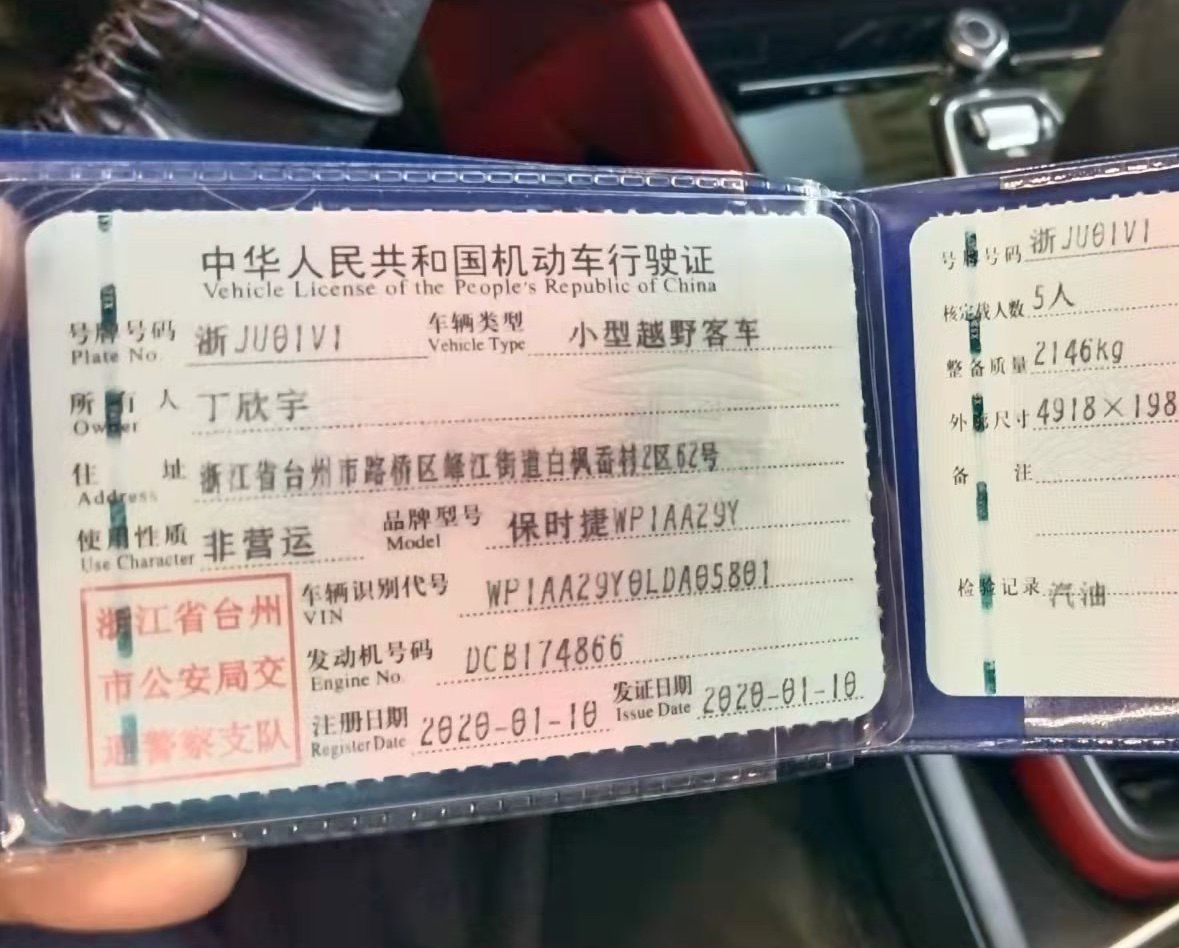 中华人民共和国机动车行驶证
Vehicle License of the People's Republic of China
号牌号码 浙JU01V1 车辆类型 小型越野客车
Plate No. Vehicle Type
所有人 丁欣宇
Owner
住址 浙江省台州市路桥区峰江街道白枫岙村2区62号
Address
使用性质 非营运 品牌型号 保时捷WP1AA29Y
Use Character Model
浙江省台州
市公安局交
通警察支队
车辆识别代号 WP1AA29Y0LDA05801
VIN
发动机号码 DCB174866
Engine No.
注册日期 2020-01-10 发证日期 2020-01-10
Register Date Issue Date
号牌号码 浙JU01V1
核定载人数 5人
整备质量 2146kg
外廓尺寸 4918×198
备注
检验记录 汽油